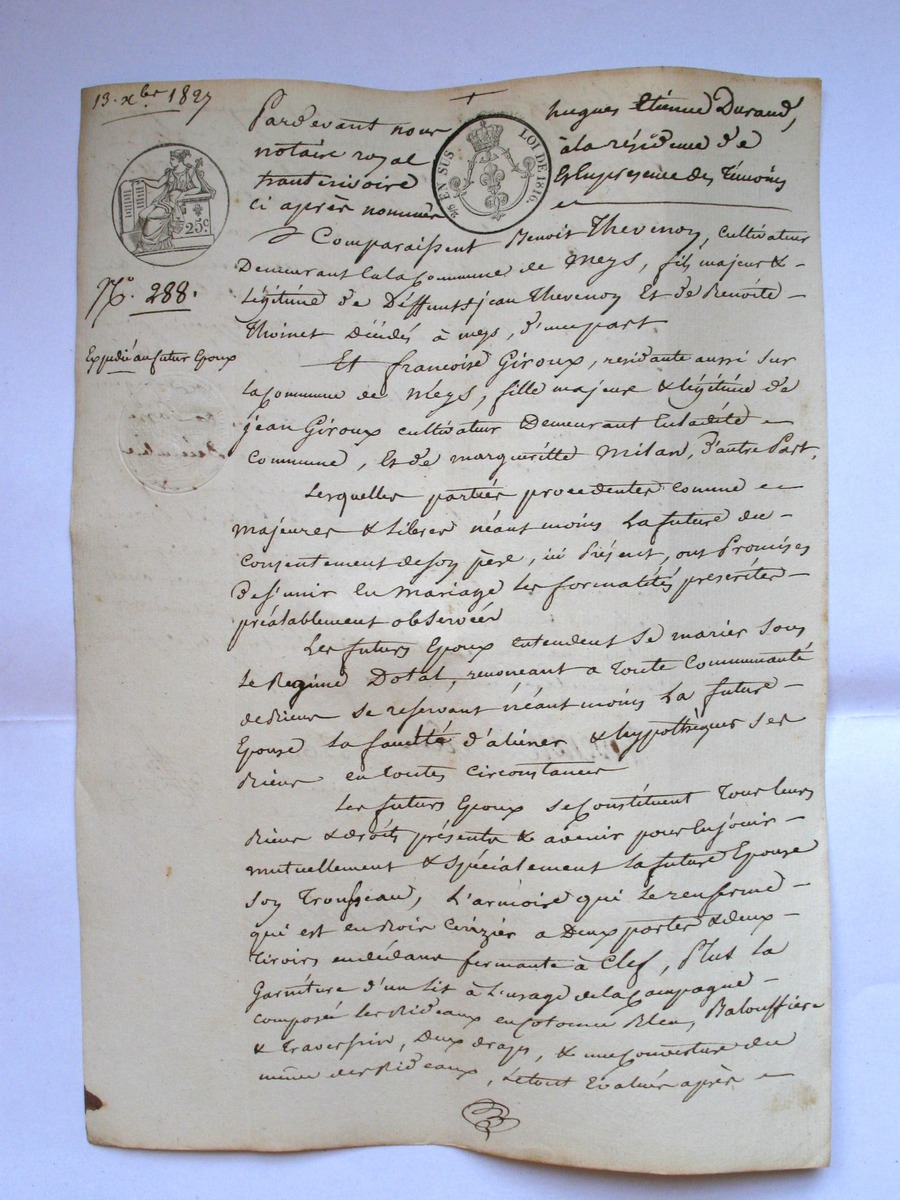 13. xbre 1827
Pardevant nous hugues Etiénne Durand,
notaire royal à la résidence de
soussigné & en presence des Témoins
ci après nommés
EN SUS
LOI DE 1816.
25c
No. 288.
Expédié au futur Epoux
Comparaissent Benoit Thevenoy, cultivateur
Demeurant en la Commune de Meys, fils majeur &
Légitime de Deffunts jean Thevenoy Et de Benoite
Thoinet Décédés à meys, d'une part
Et francoise Giroux, residante aussi sur
la Commune de Meys, fille majeure & légitime de
jean Giroux cultivateur Demeurant En ladite
Commune, Et de margueritte Milan, D'autre Part,
Lesquelles parties procedentes comme
majeures & Libres néantmoins La future du
consentement de soy père, ici Présent, ont Promises
De s'unir En Mariage Les formalités prescrites
préalablement observées
Les futurs Epoux entendent se marier sous
Le Regime Dotal, renoncant a Toute Communauté
de Bieus se reservant Néant moins La future
Epouse La faculté d'aliéner & hypothèquer ses
Bieus en toutes circonstances
Les futurs Epoux se Constituent Tous leurs
Bieus & droits présents & avenir pour En jouir
mutuellement & spécialement La future Epouse
soy Trousseau, L'armoire qui Le renferme
qui est en Bois Cerizier a Deux portes & deux
Tiroirs en dédans fermante à Clef, Plus La
Garniture d'un Lit à L'usage de la Campagne
composée Les Rideaux en Cotonne Bleu, Balouffière
& Traversier, Deux draps, & une Couverture du
même des Rideaux, Le tout Evalués après